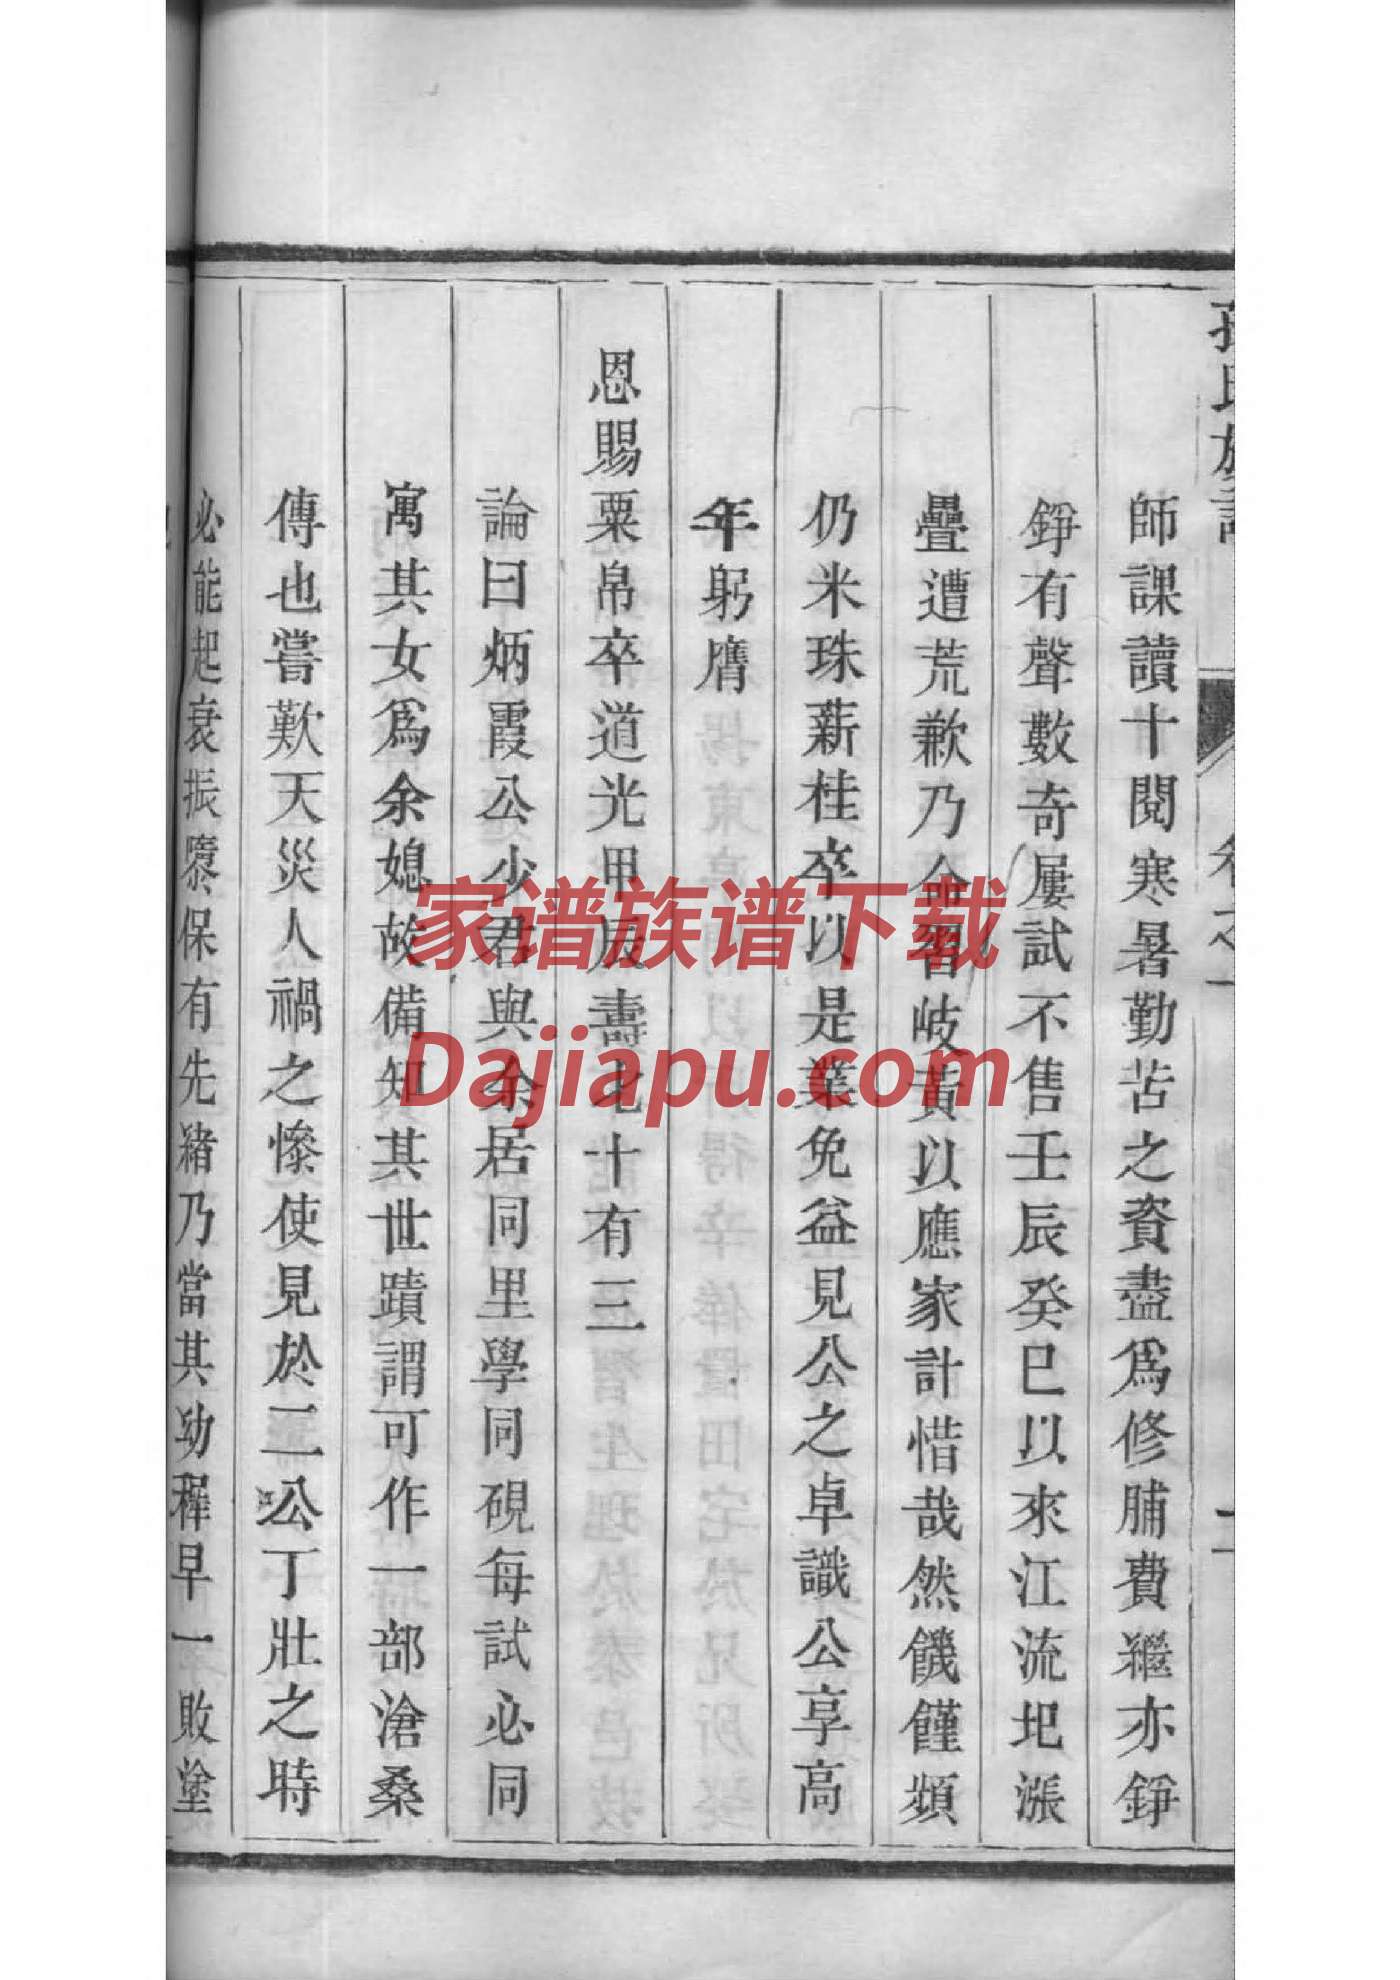 孫氏族譜
卷之一
師課讀十閱寒暑勤苦之資盡為修脯費繼亦錚
錚有聲數奇屢試不售壬辰癸巳以來江流圯漲
疊遭荒歉乃命習岐黃以應家計惜哉然饑饉頻
仍米珠薪桂卒以是業免益見公之卓識公享高
年躬膺
恩賜粟帛卒道光甲辰壽七十有三
論曰炳霞公少君與余居同里學同硯每試必同
寓其女為余媳故備知其世蹟謂可作一部滄桑
傳也嘗歎天災人禍之慘使見於二公丁壯之時
必能起衰振隳保有先緒乃當其幼穉早一敗塗
家谱族谱下载
Dajiapu.com